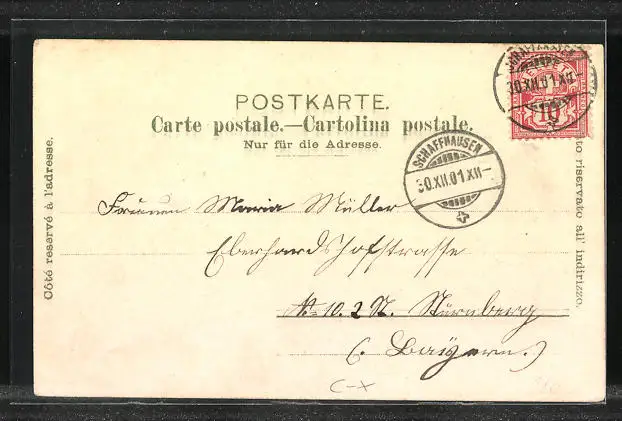 POSTKARTE.
Carte postale.—Cartolina postale.
Nur für die Adresse.
Côté reservé à l'adresse.
to riservato all' indirizzo.
HELVETIA
10
SCHAFFHAUSEN
30.XII.01.XII-
SCHAFFHAUSEN
30.XII.01.XII-
Maria Müller
Eberhardshofstrasse
No 10. 2 St. Nürnberg
(. Bayern.)
C-x